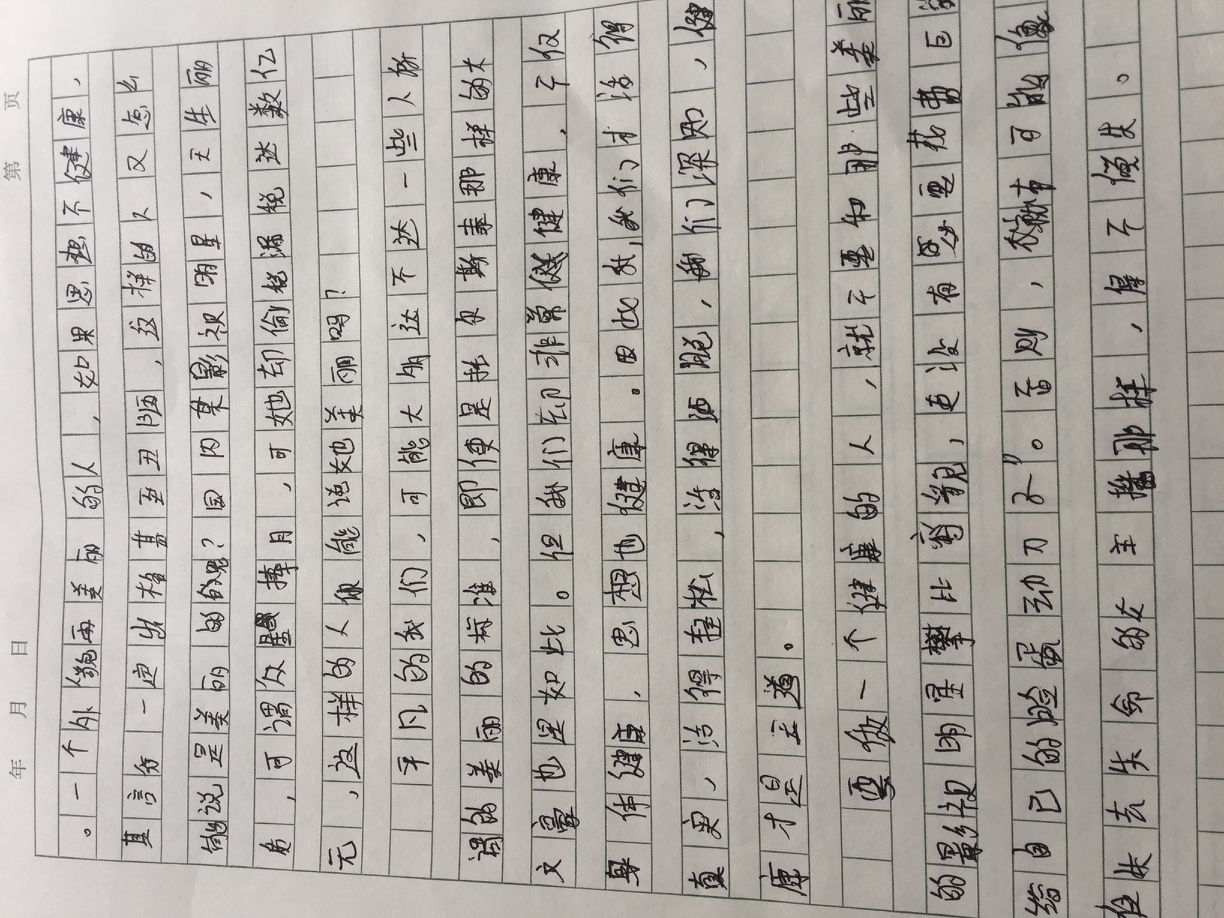 年 月 日 第 页
。一个外貌再美丽的人，如果思想不健康，
其言行一定出格甚至丑陋，这样的人又怎么
能说是美丽的呢？国内某影视明星，天生丽
质，可谓众星捧月，可她却偷税漏税达数亿
元，这样的人你能说她美丽吗？
平凡的我们，可能大多达不达一些人所
谓的美丽的标准，即使是托尔斯泰那样的大
文豪也是如此。但我们却非常健康，不仅
身体健康，思想也健康。因此，我们才活得
真实，活得轻松，活得洒脱，我们深知，健
康才是王道。
要做一个健康的人，就不要和那些美丽
的影视明星攀比身貌，更没有必要花费巨资
给自己的脸蛋动刀子”。否则，你就有可能像
自失去生命的女主播那样，得不偿失。